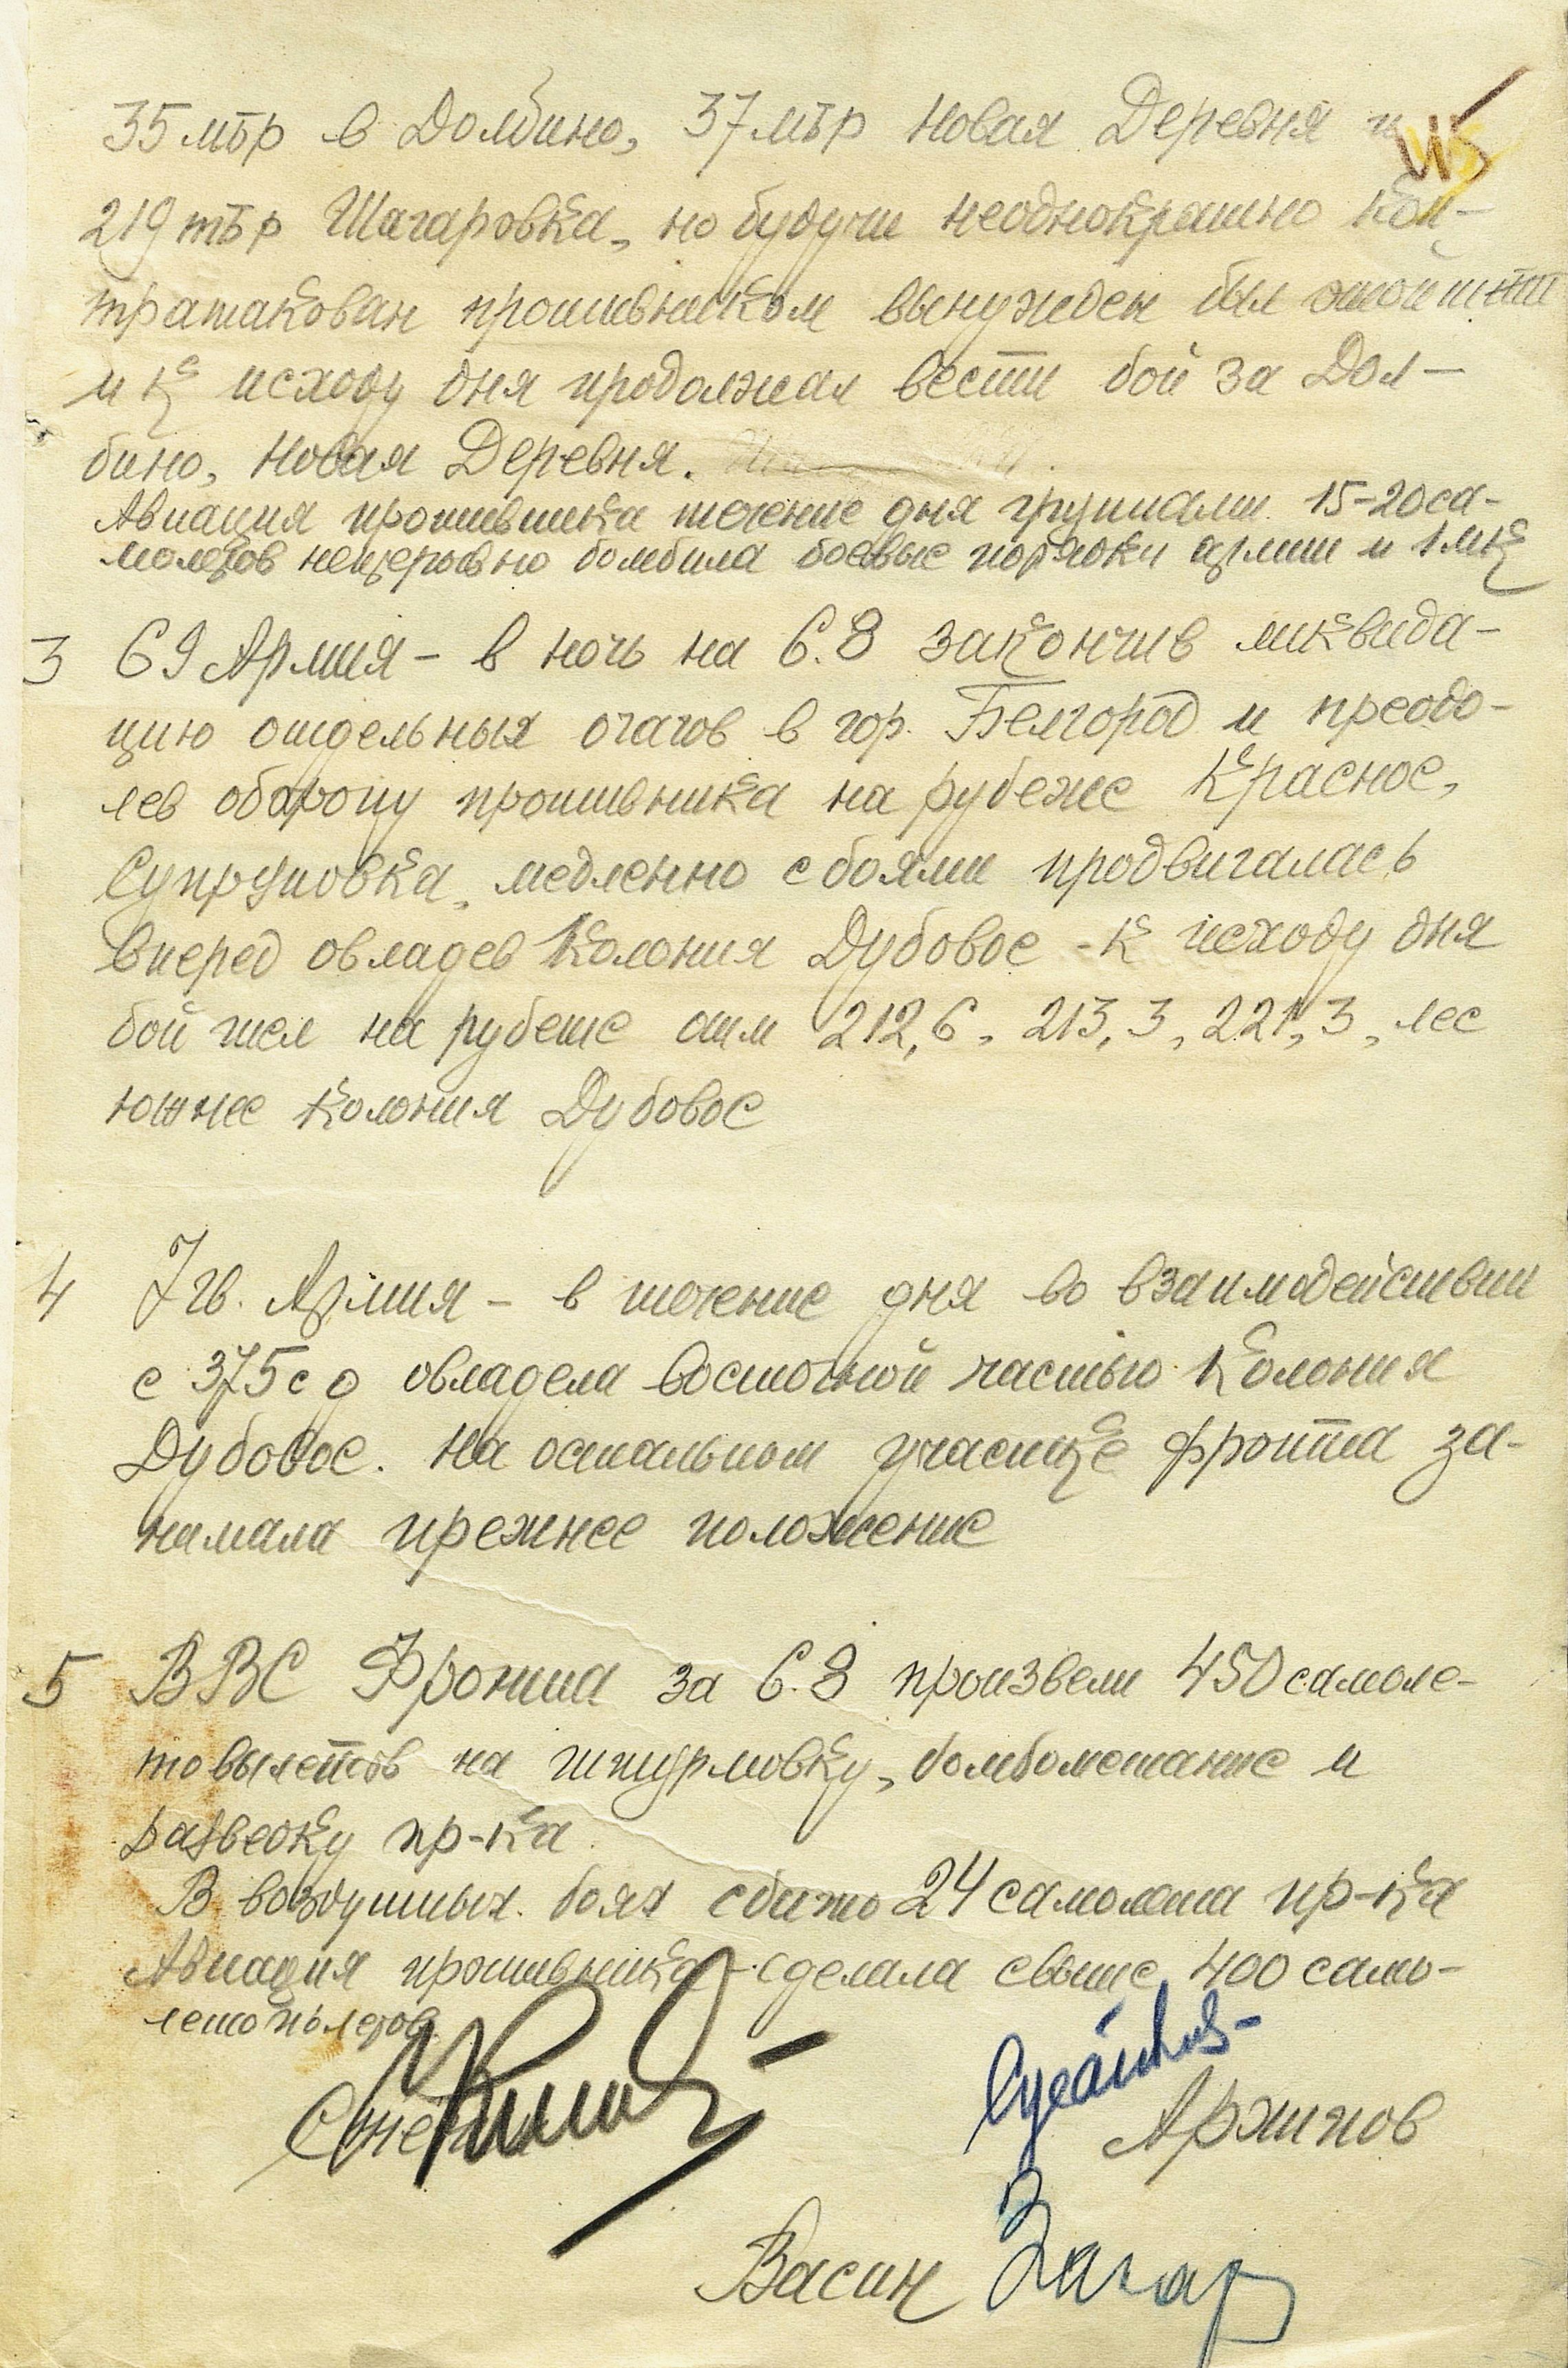 35 мбр в Долбино, 37 мбр Новая Деревня и
115
219 тбр Шагаровка, но будучи неоднократно кон-
тратакован противником вынужден был отойти
и к исходу дня продолжал вести бой за Дол-
бино, Новая Деревня.
Авиация противника течение дня группами 15-20 са-
молетов непрерывно бомбила боевые порядки армии и 1 мк
3 69 Армия – в ночь на 6.8 закончив ликвида-
цию отдельных очагов в гор. Белгород и преодо-
лев оборону противника на рубеже Красное,
Супруновка, медленно с боями продвигалась
вперед овладев Колония Дубовое - к исходу дня
бой шел на рубеже отм 212,6, 213,3, 221,3, лес
южнее Колония Дубовое
4 7 гв. Армия – в течение дня во взаимодействии
с 375 сд овладела восточной частью Колония
Дубовое. На остальном участке фронта за-
нимала прежнее положение
5 ВВС Фронта за 6.8 произвели 450 самоле-
товылетов на штурмовку, бомбометание и
разведку пр-ка.
В воздушных боях сбито 24 самолета пр-ка
Авиация противника – сделала свыше 400 само-
летополетов.
Архипов
Васин